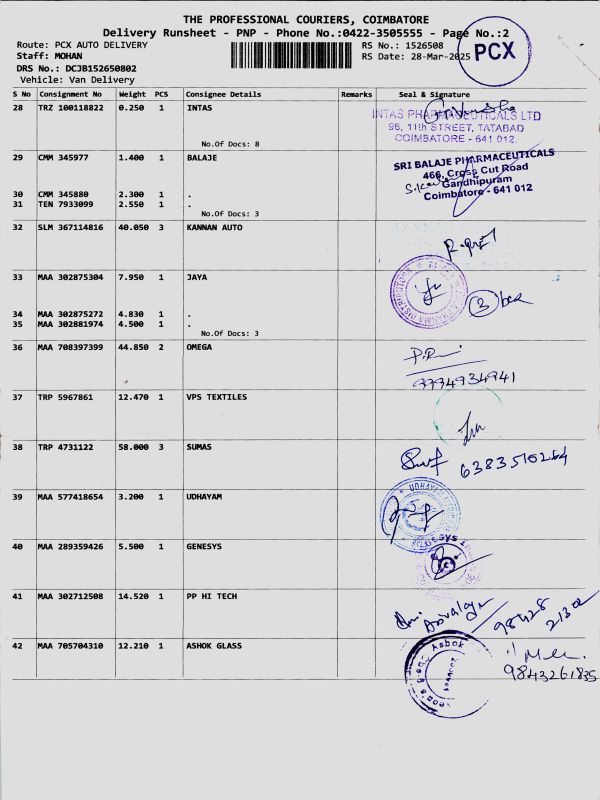 THE PROFESSIONAL COURIERS, COIMBATORE
Delivery Runsheet - PNP - Phone No.:0422-3505555 - Page No.:2
Route: PCX AUTO DELIVERY
RS No.: 1526508
PCX
Staff: MOHAN
RS Date: 28-Mar-2025
DRS No.: DCJB152650802
Vehicle: Van Delivery
S No Consignment No Weight PCS Consignee Details Remarks Seal & Signature
28 TRZ 100118822 0.250 1 INTAS
INTAS PHARMACEUTICALS LTD
96, 11th STREET, TATABAD
COIMBATORE - 641 012.
No.Of Docs: 8
29 CMM 345977 1.400 1 BALAJE
SRI BALAJE PHARMACEUTICALS
466, Cross Cut Road
Gandhipuram
Coimbatore - 641 012
30 CMM 345880 2.300 1 .
31 TEN 7933099 2.550 1 .
No.Of Docs: 3
32 SLM 367114816 40.050 3 KANNAN AUTO
33 MAA 302875304 7.950 1 JAYA
3 box
34 MAA 302875272 4.830 1 .
35 MAA 302881974 4.500 1 .
No.Of Docs: 3
36 MAA 708397399 44.850 2 OMEGA
9994934941
37 TRP 5967861 12.470 1 VPS TEXTILES
38 TRP 4731122 58.000 3 SUMAS
6383510264
39 MAA 577418654 3.200 1 UDHAYAM
UDHAYAM
40 MAA 289359426 5.500 1 GENESYS
41 MAA 302712508 14.520 1 PP HI TECH
98428
21302
42 MAA 705704310 12.210 1 ASHOK GLASS
Ashok
9843261835